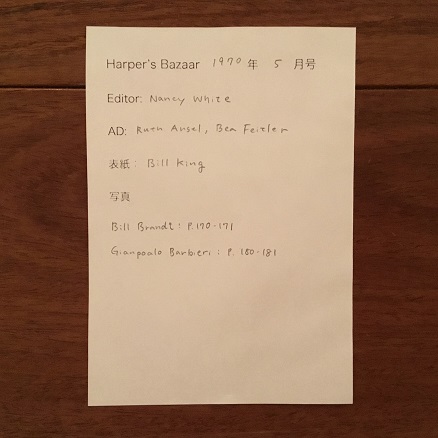 Harper's Bazaar 1970 年 5 月号
Editor: Nancy White
AD: Ruth Ansel, Bea Feitler
表紙: Bill King
写真
Bill Brandt: P.170-171
Gianpoalo Barbieri: P.180-181